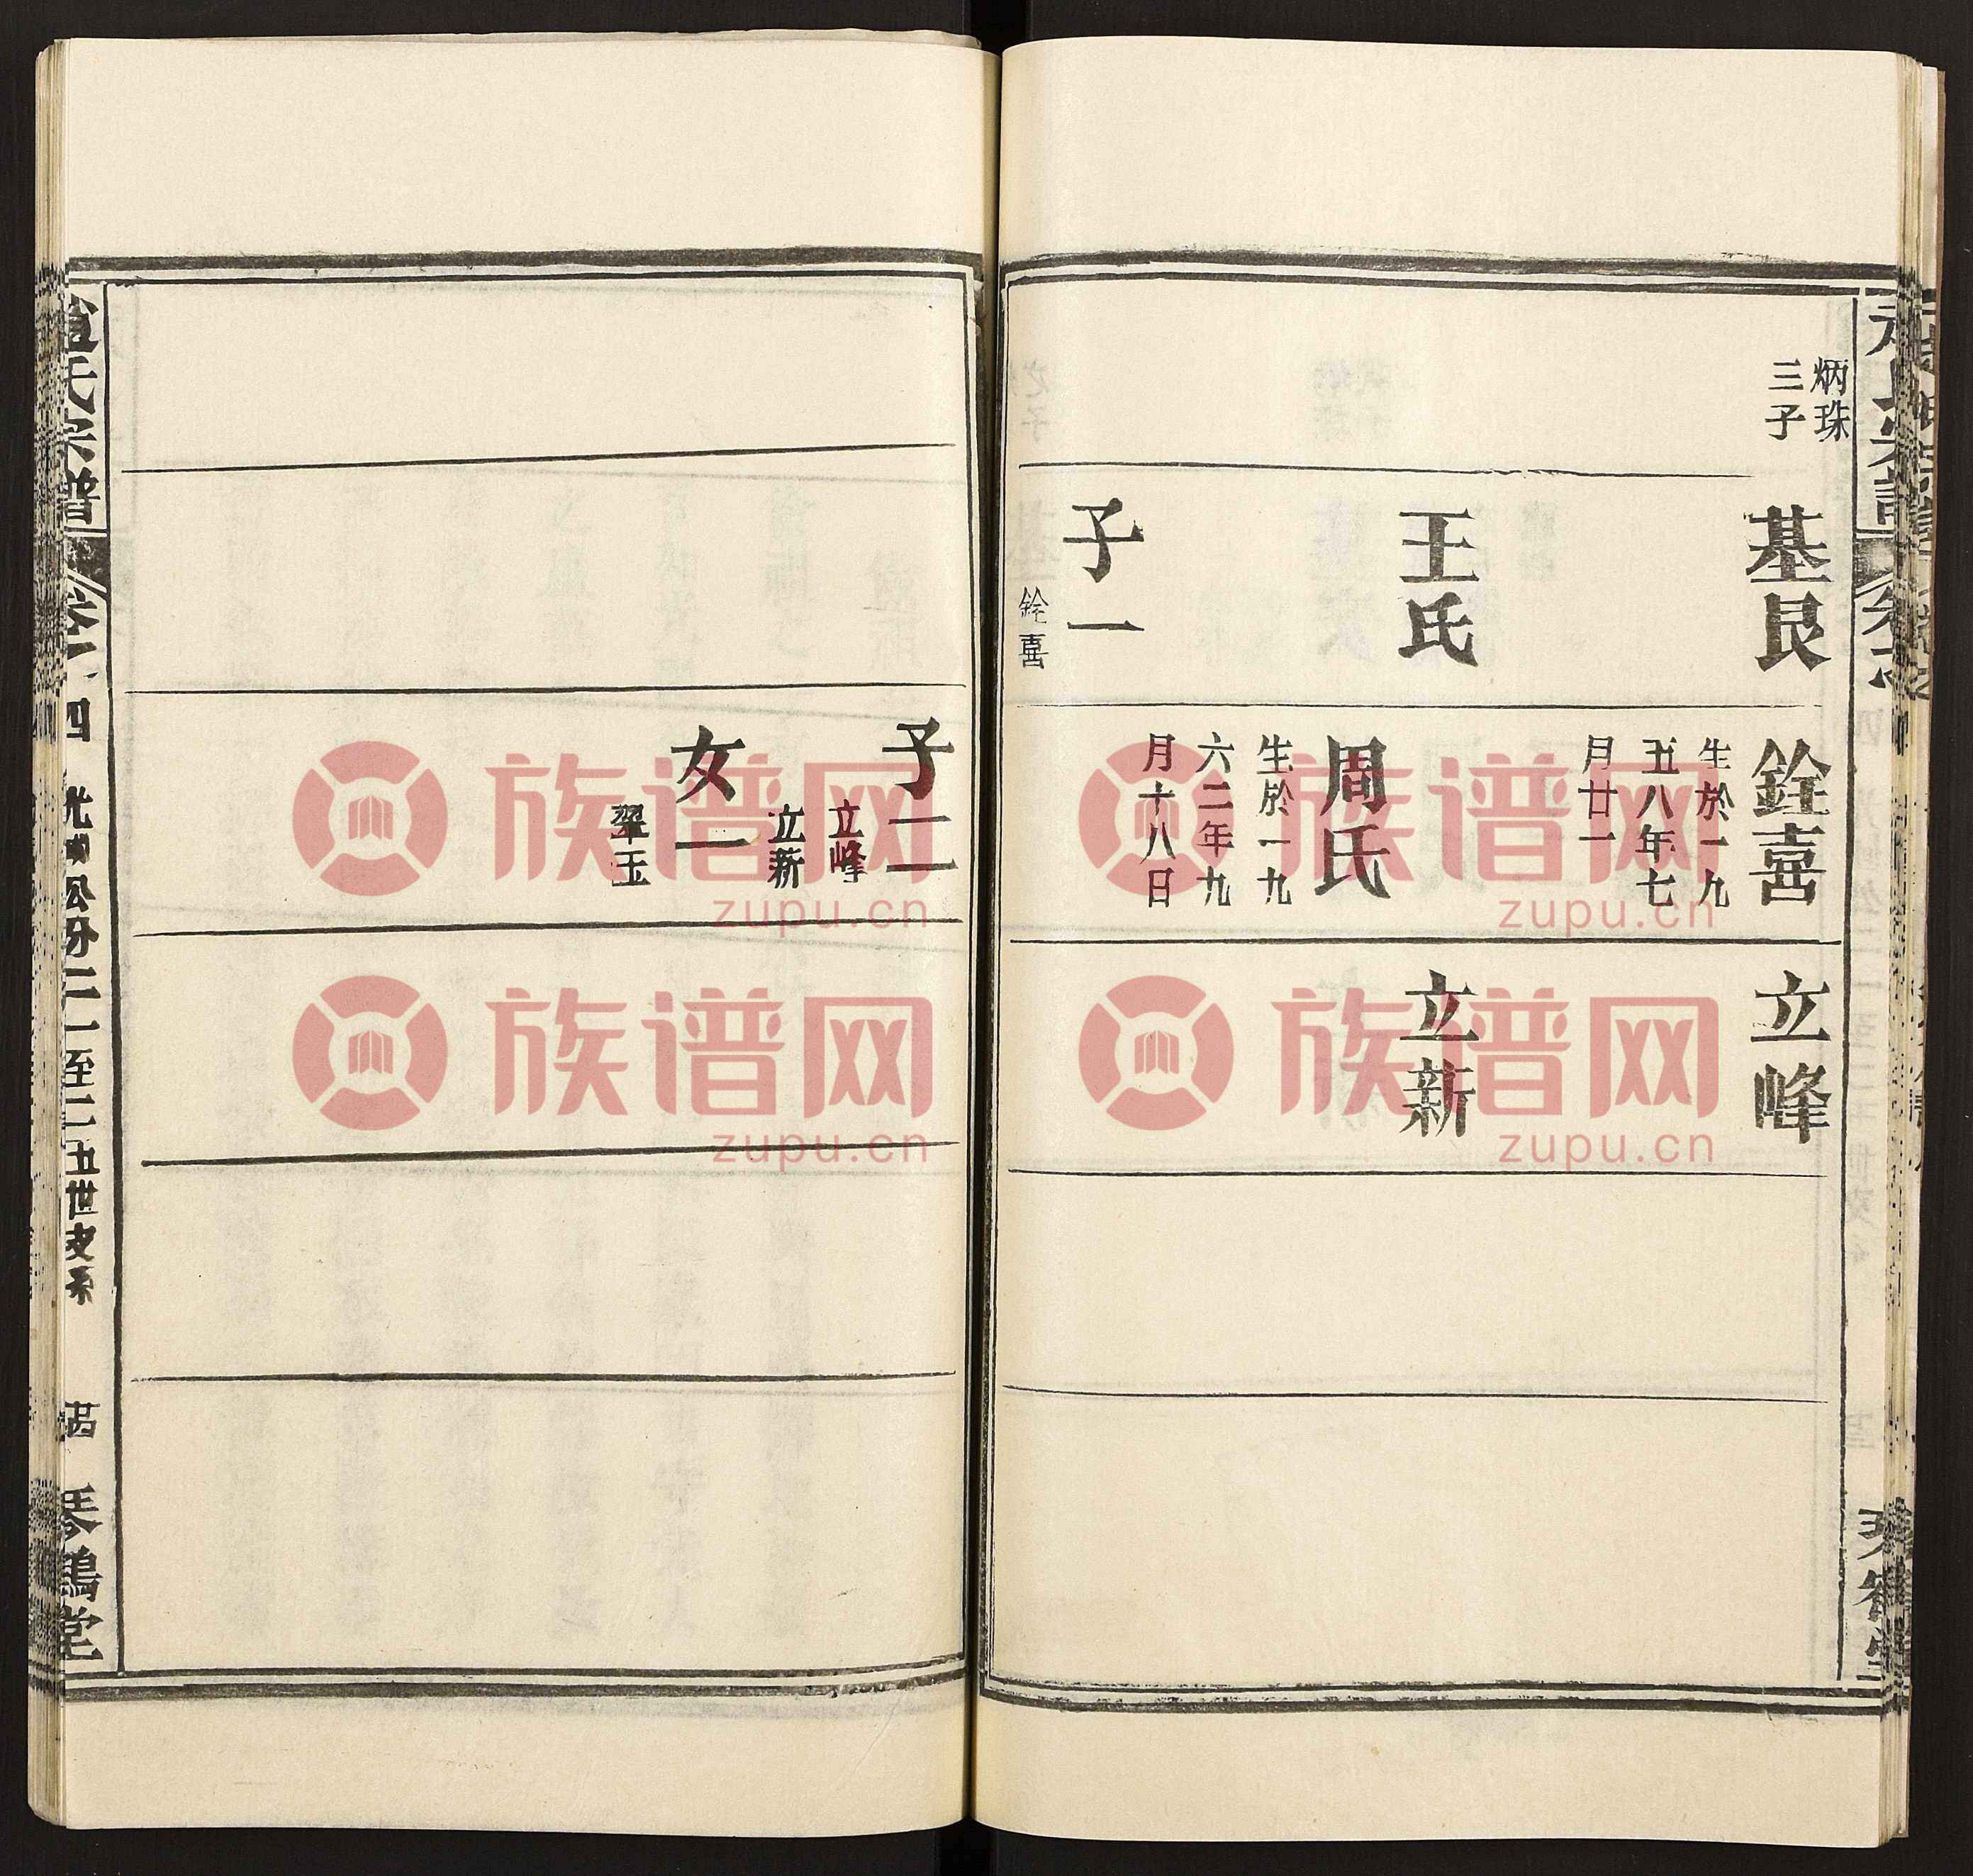 炳珠
三子
基艮
王氏
子一
銓喜
銓喜
生於一九
五八年七
月廿一
周氏
生於一九
六二年九
月十八日
立峰
立新
子二
立峰
立新
女一
翠玉
趙氏宗譜
四
公分二一至二五世支系
琴鶴堂
族谱网
zupu.cn
族谱网
zupu.cn
族谱网
zupu.cn
族谱网
zupu.cn